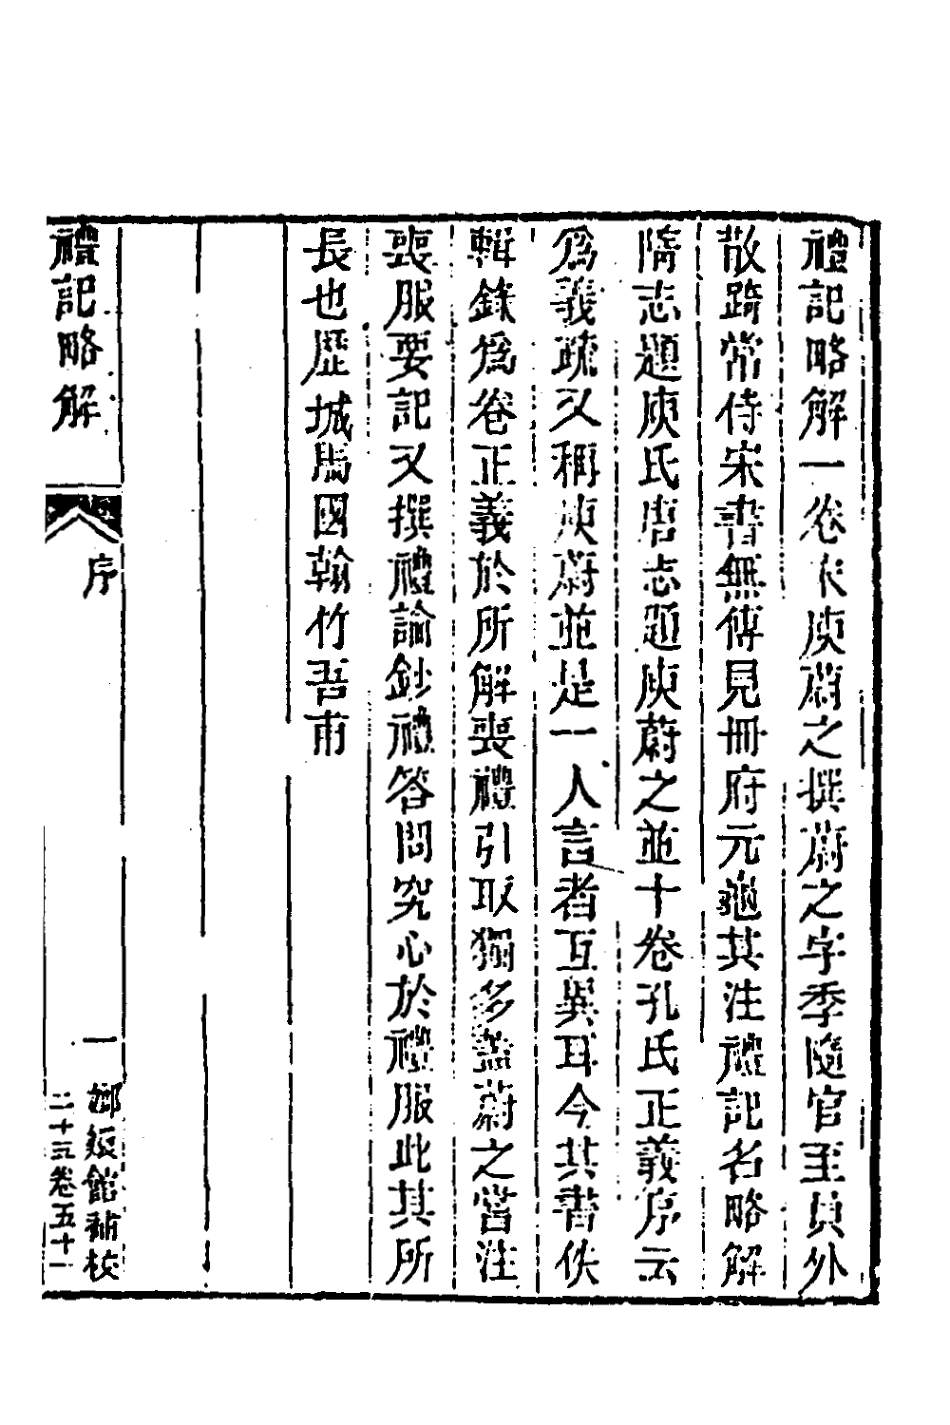 禮記略解一卷宋庾蔚之撰蔚之字季隨官至員外
散騎常侍宋書無傳見冊府元龜其注禮記名略解
隋志題庾氏唐志題庾蔚之並十卷孔氏正義序云
爲義疏又稱庾蔚並是一人言者互異耳今其書佚
輯錄爲卷正義於所解喪禮引取獨多蓋蔚之嘗注
喪服要記又撰禮論鈔禮答問究心於禮服此其所
長也歷城馬國翰竹吾甫
禮記略解
序
一
嫏嬛館補校
二十三卷五十一